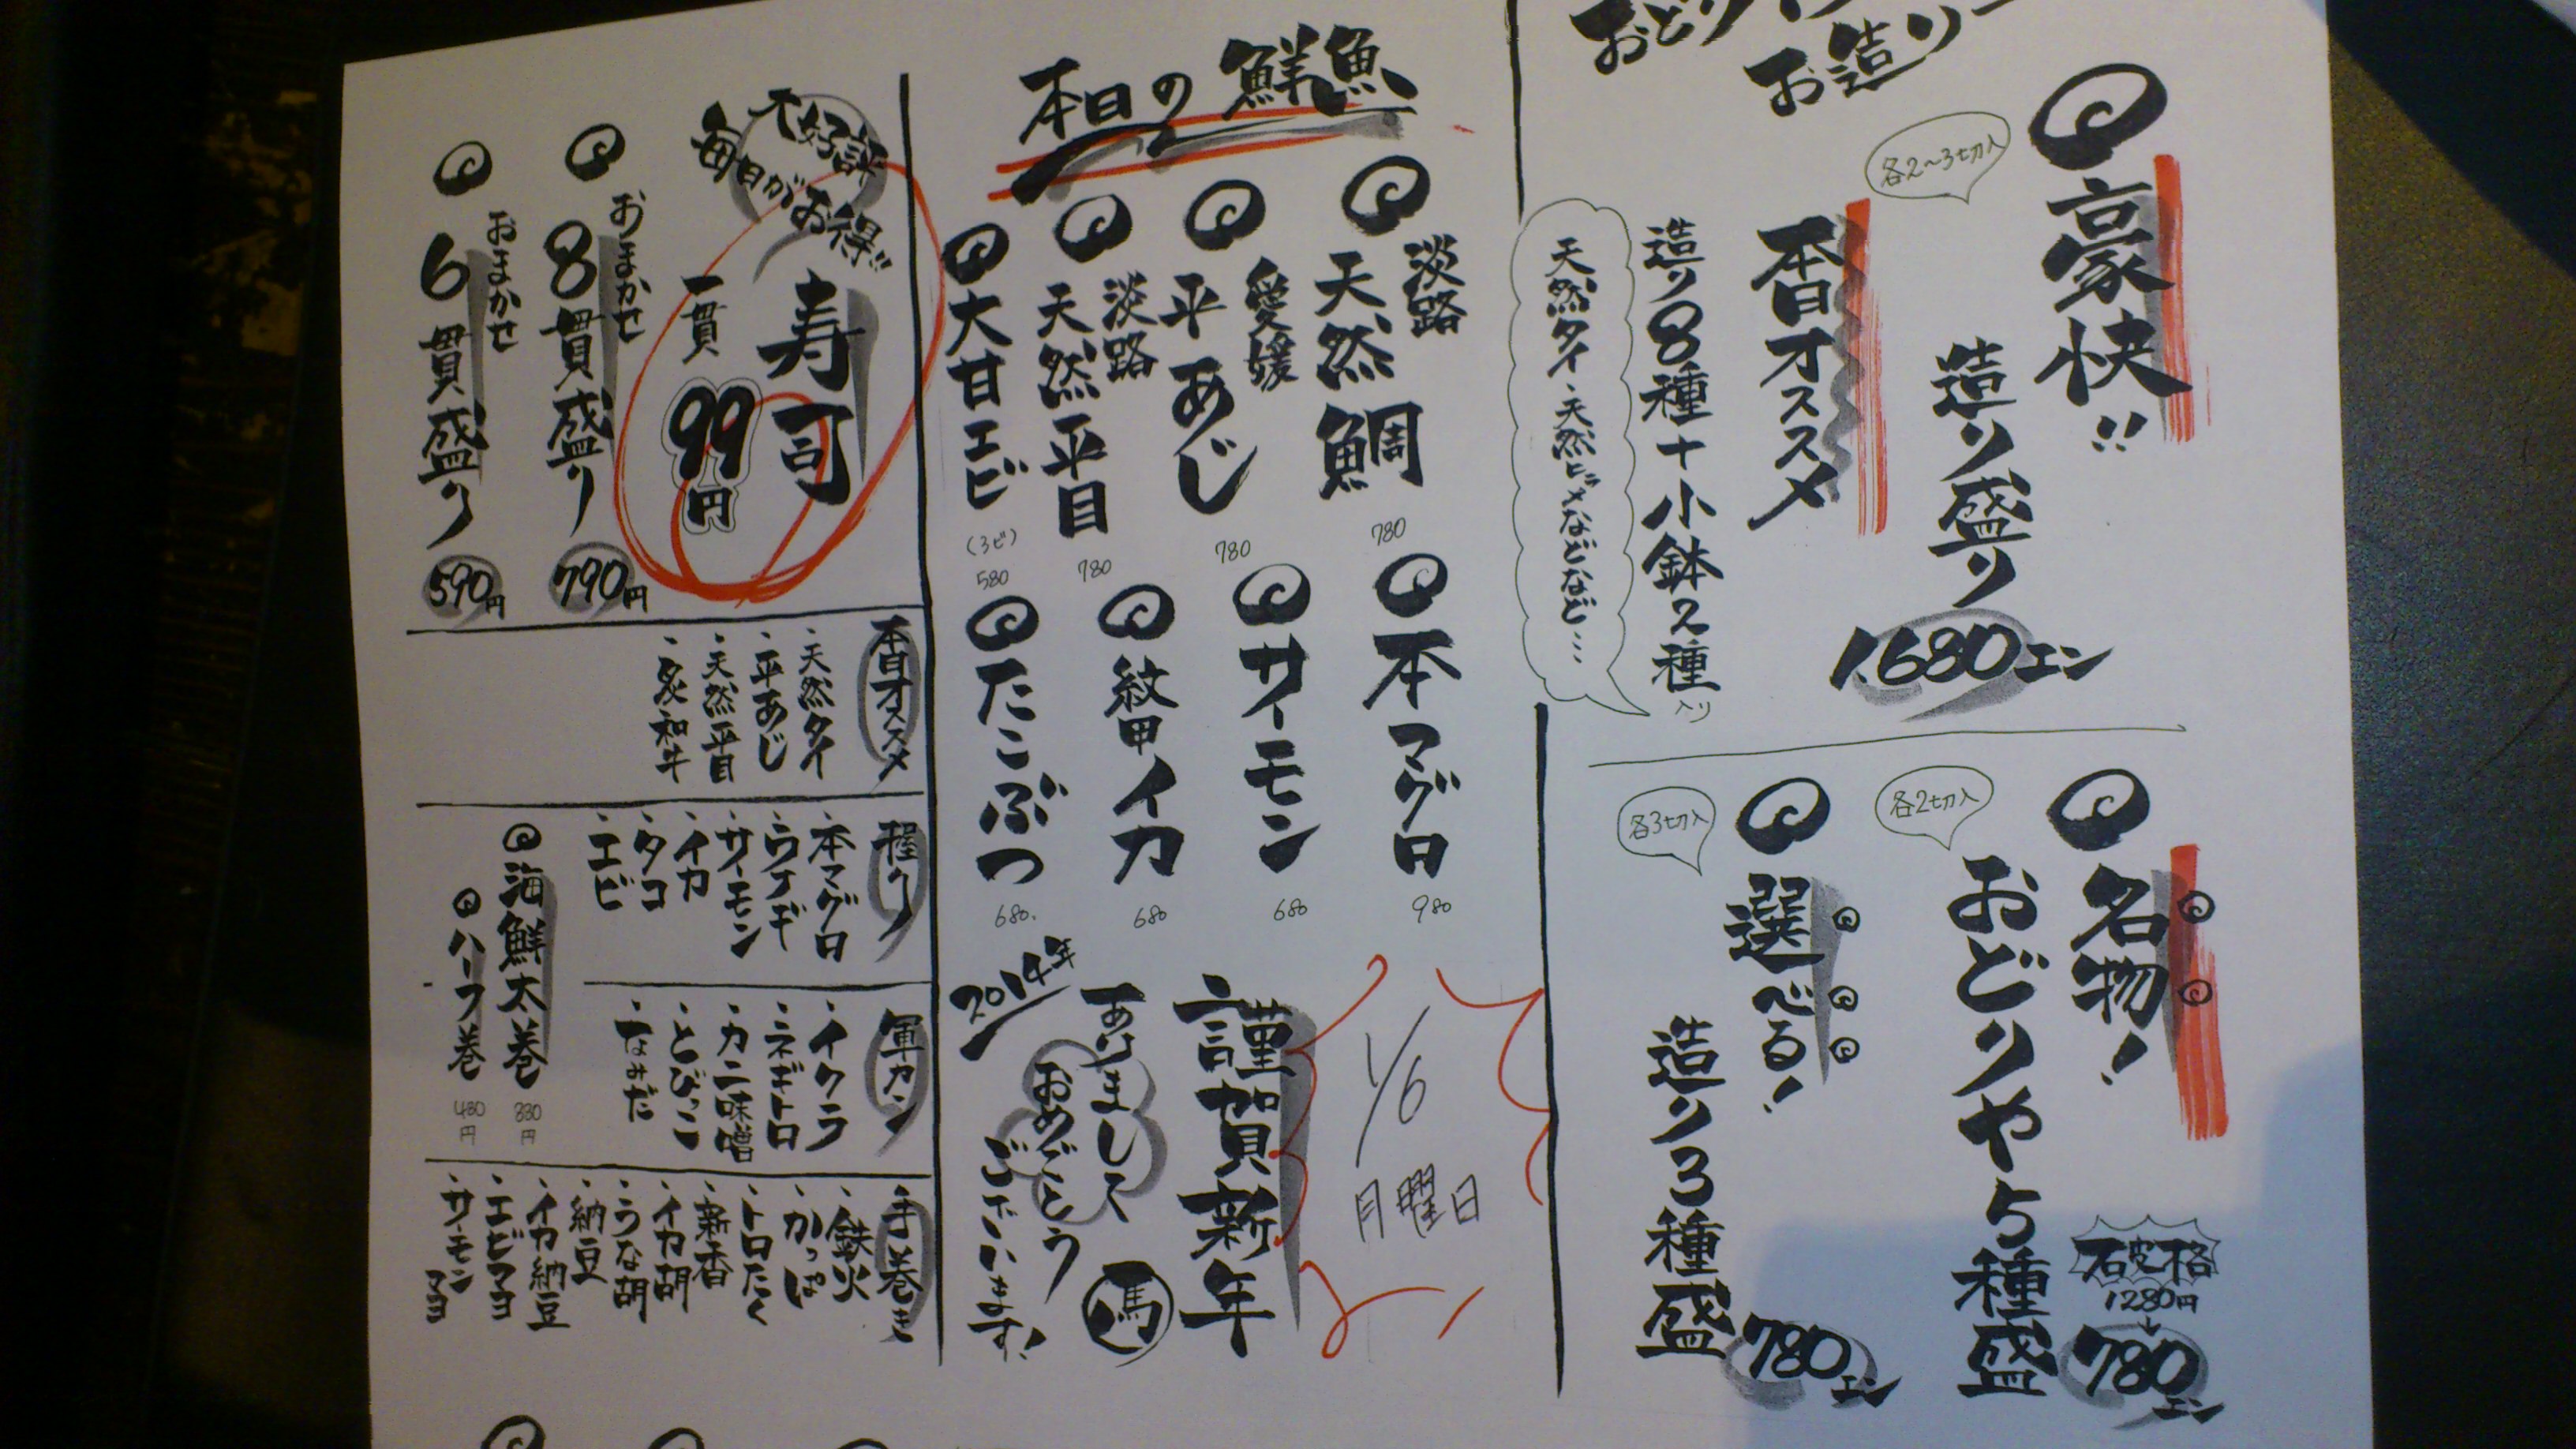 お造り
豪快!!
造り盛り
1.680エン
各2〜3切入
本日オススメ
造り8種+小鉢2種入り
天然タイ・天然ヒラメなどなど…
名物!
おどりや5種盛
破格
1280円
780エン
各2切入
選べる!
造り3種盛
780エン
各3切入
本日の鮮魚
淡路
天然鯛
780
愛媛
平あじ
780
淡路
天然平目
780
大甘エビ
(3ビ)
580
本マグロ
980
サーモン
680
紋甲イカ
680
たこぶつ
680.
1/6
月曜日
謹賀新年
馬
あけまして
おめでとう
ございます!
2014年
大好評
毎日がお得!!
寿司
一貫
99円
おまかせ
8貫盛り
790円
おまかせ
6貫盛り
590円
本日オススメ
・天然タイ
・平あじ
・天然平目
・炙り和牛
握り
・本マグロ
・ウナギ
・サーモン
・イカ
・タコ
・エビ
軍カン
・イクラ
・ネギトロ
・カニ味噌
・とびっこ
・なみだ
海鮮太巻
880円
ハーフ巻
480円
手巻き
・鉄火
・かっぱ
・トロたく
・新香
・イカ胡
・うな胡
・納豆
・イカ納豆
・エビマヨ
・サーモンマヨ